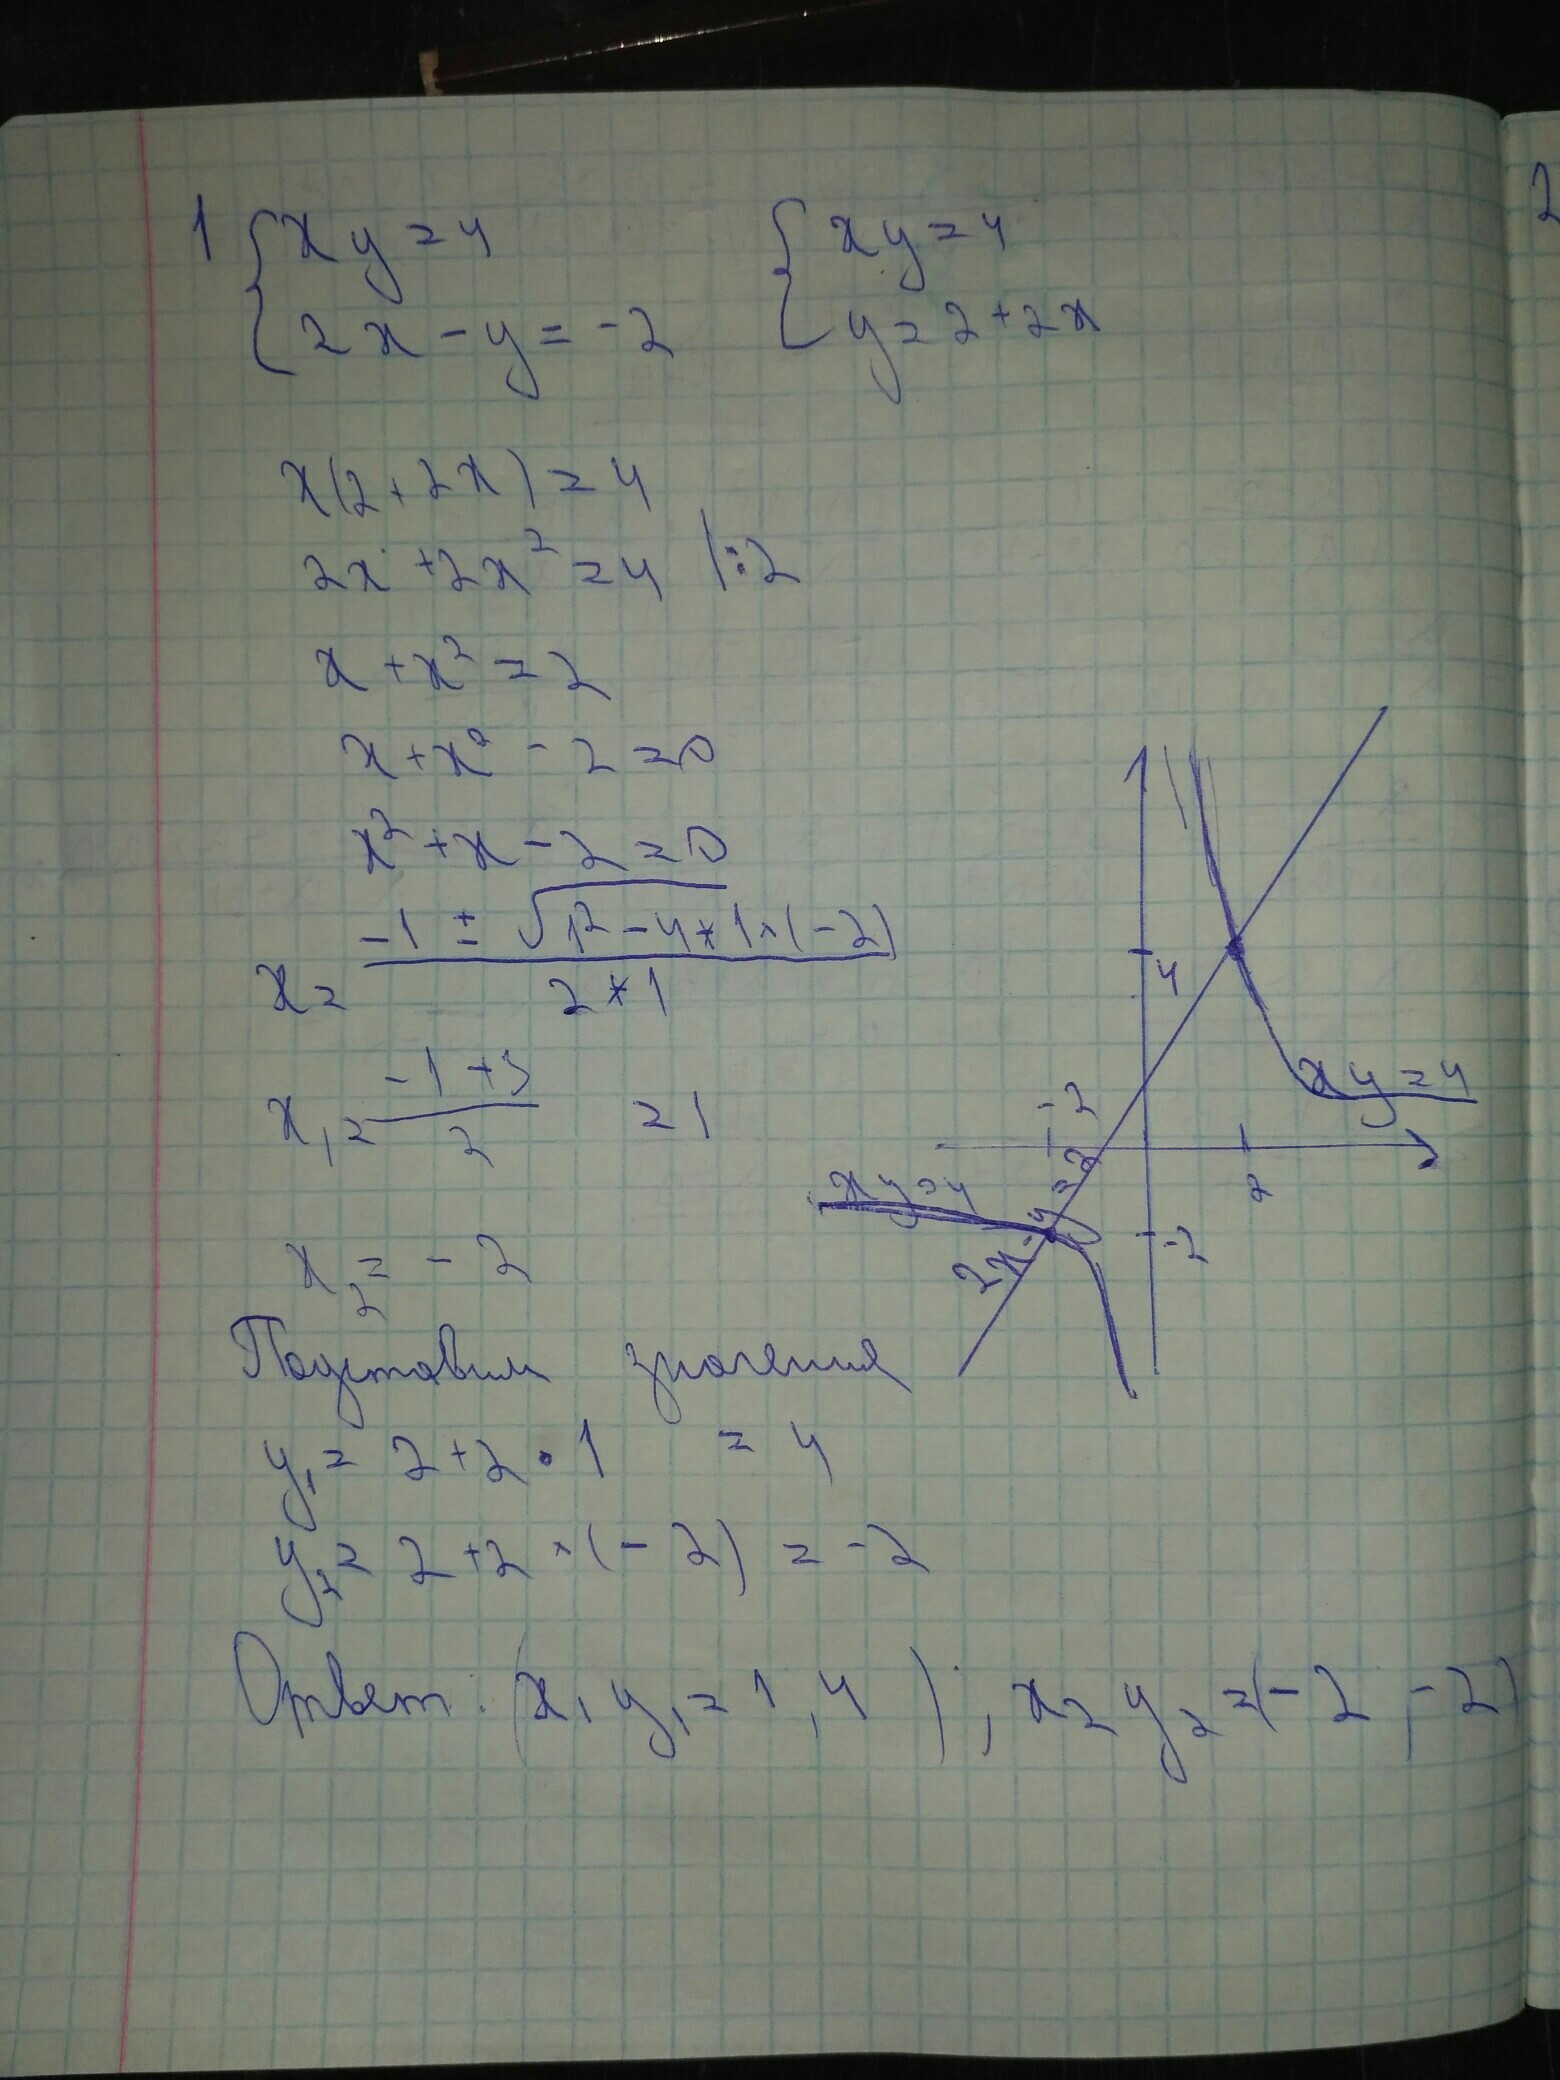 1 { xy = 4 { xy = 4
2x - y = -2 y = 2 + 2x
x(2 + 2x) = 4
2x + 2x² = 4 |:2
x + x² = 2
x + x² - 2 = 0
x² + x - 2 = 0
x = (-1 ± √1² - 4 * 1 * (-2)) / (2 * 1)
x₁ = (-1 + 3) / 2 = 1
x₂ = -2
Подставим значения
y₁ = 2 + 2 · 1 = 4
y₂ = 2 + 2 * (-2) = -2
Ответ: (x₁ y₁ = 1, 4); x₂ y₂ = (-2, -2)
4
xy = 4
-2
2
xy = 4
-2
2